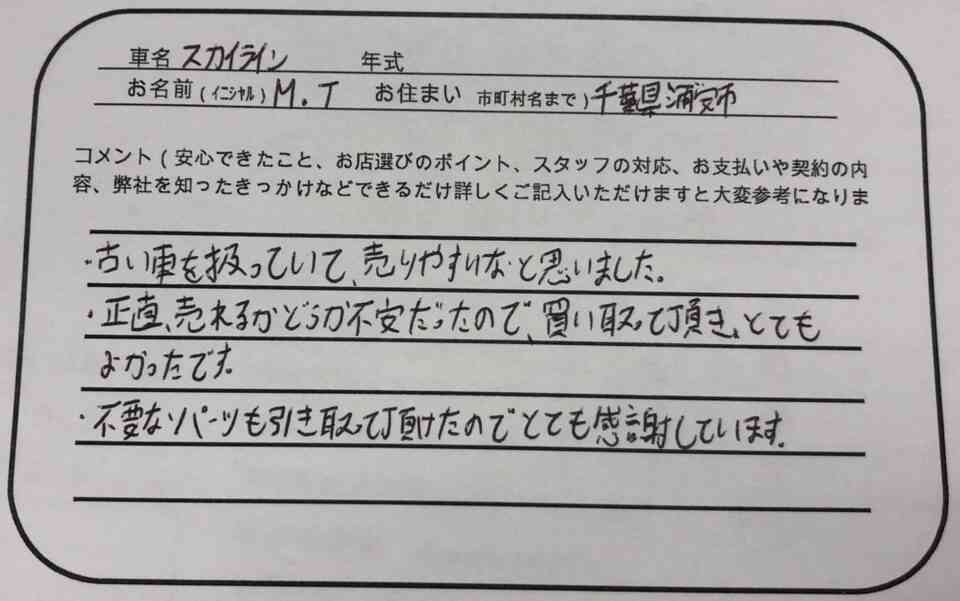 車名 スカイライン 年式
お名前（イニシャル）M.T お住まい 市町村名まで）千葉県浦安市
コメント（安心できたこと、お店選びのポイント、スタッフの対応、お支払いや契約の内
容、弊社を知ったきっかけなどできるだけ詳しくご記入いただけますと大変参考になりま
・古い車を扱っていて、売りやすいなと思いました。
・正直、売れるかどうか不安だったので、買い取って頂き、とても
よかったです。
・不要なパーツも引き取って頂けたのでとても感謝しています。